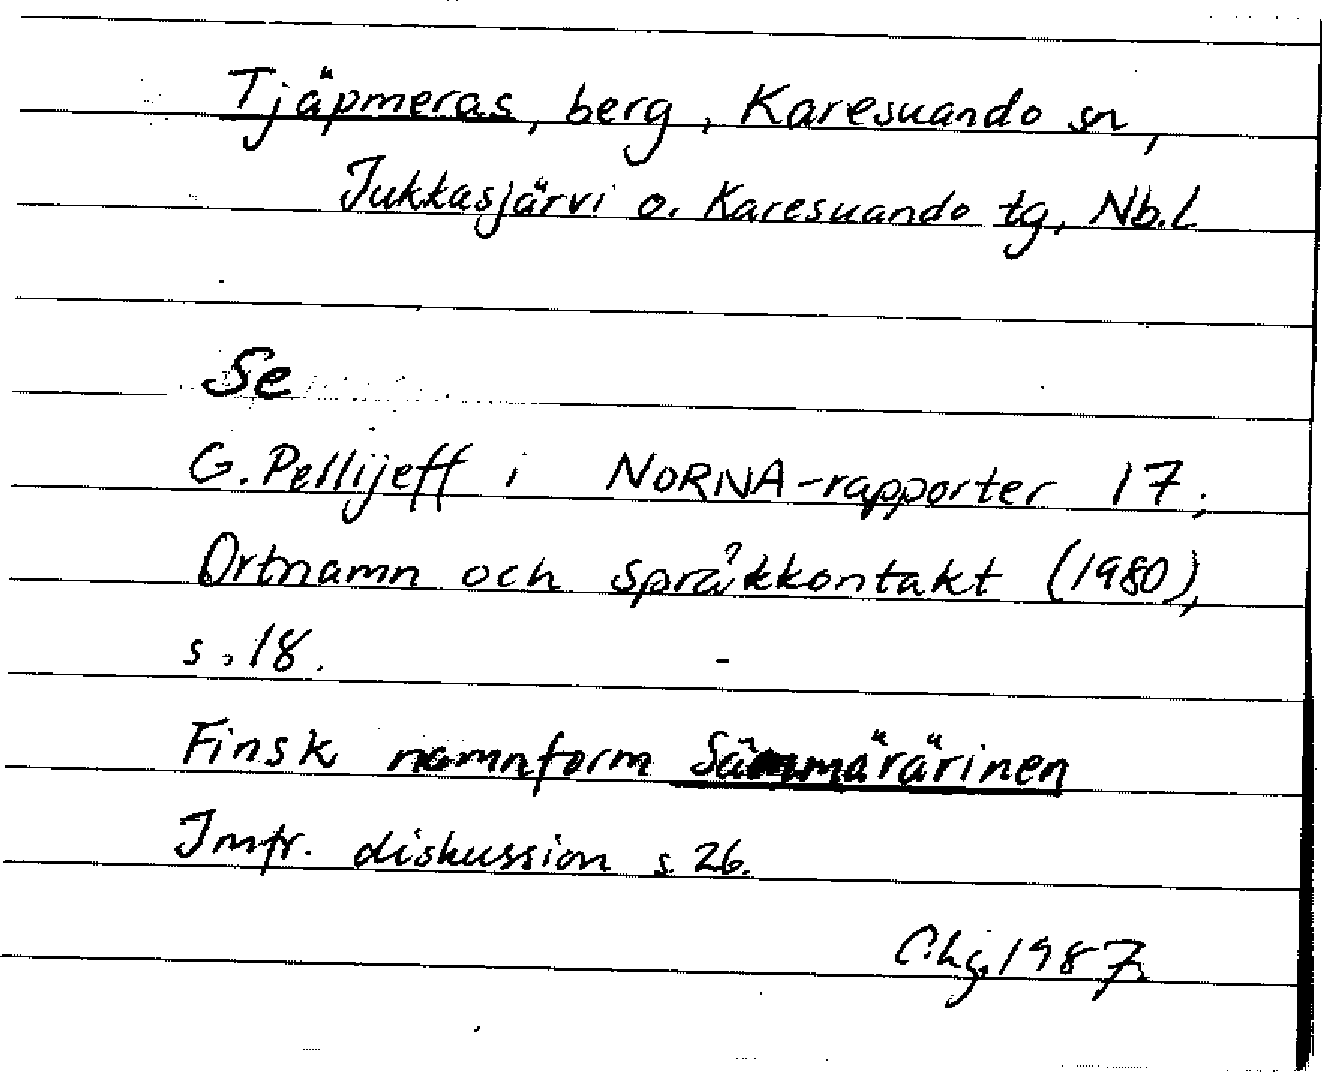 Tjäpmeras, berg, Karesuando sn,
Jukkasjärvi o. Karesuando tg, Nb.L
Se
G. Pellijeff i NORNA-rapporter 17;
Ortnamn och språkkontakt (1980),
s. 18.
Finsk namnform Sämmärärinen
Jmfr. diskussion s. 26.
1987